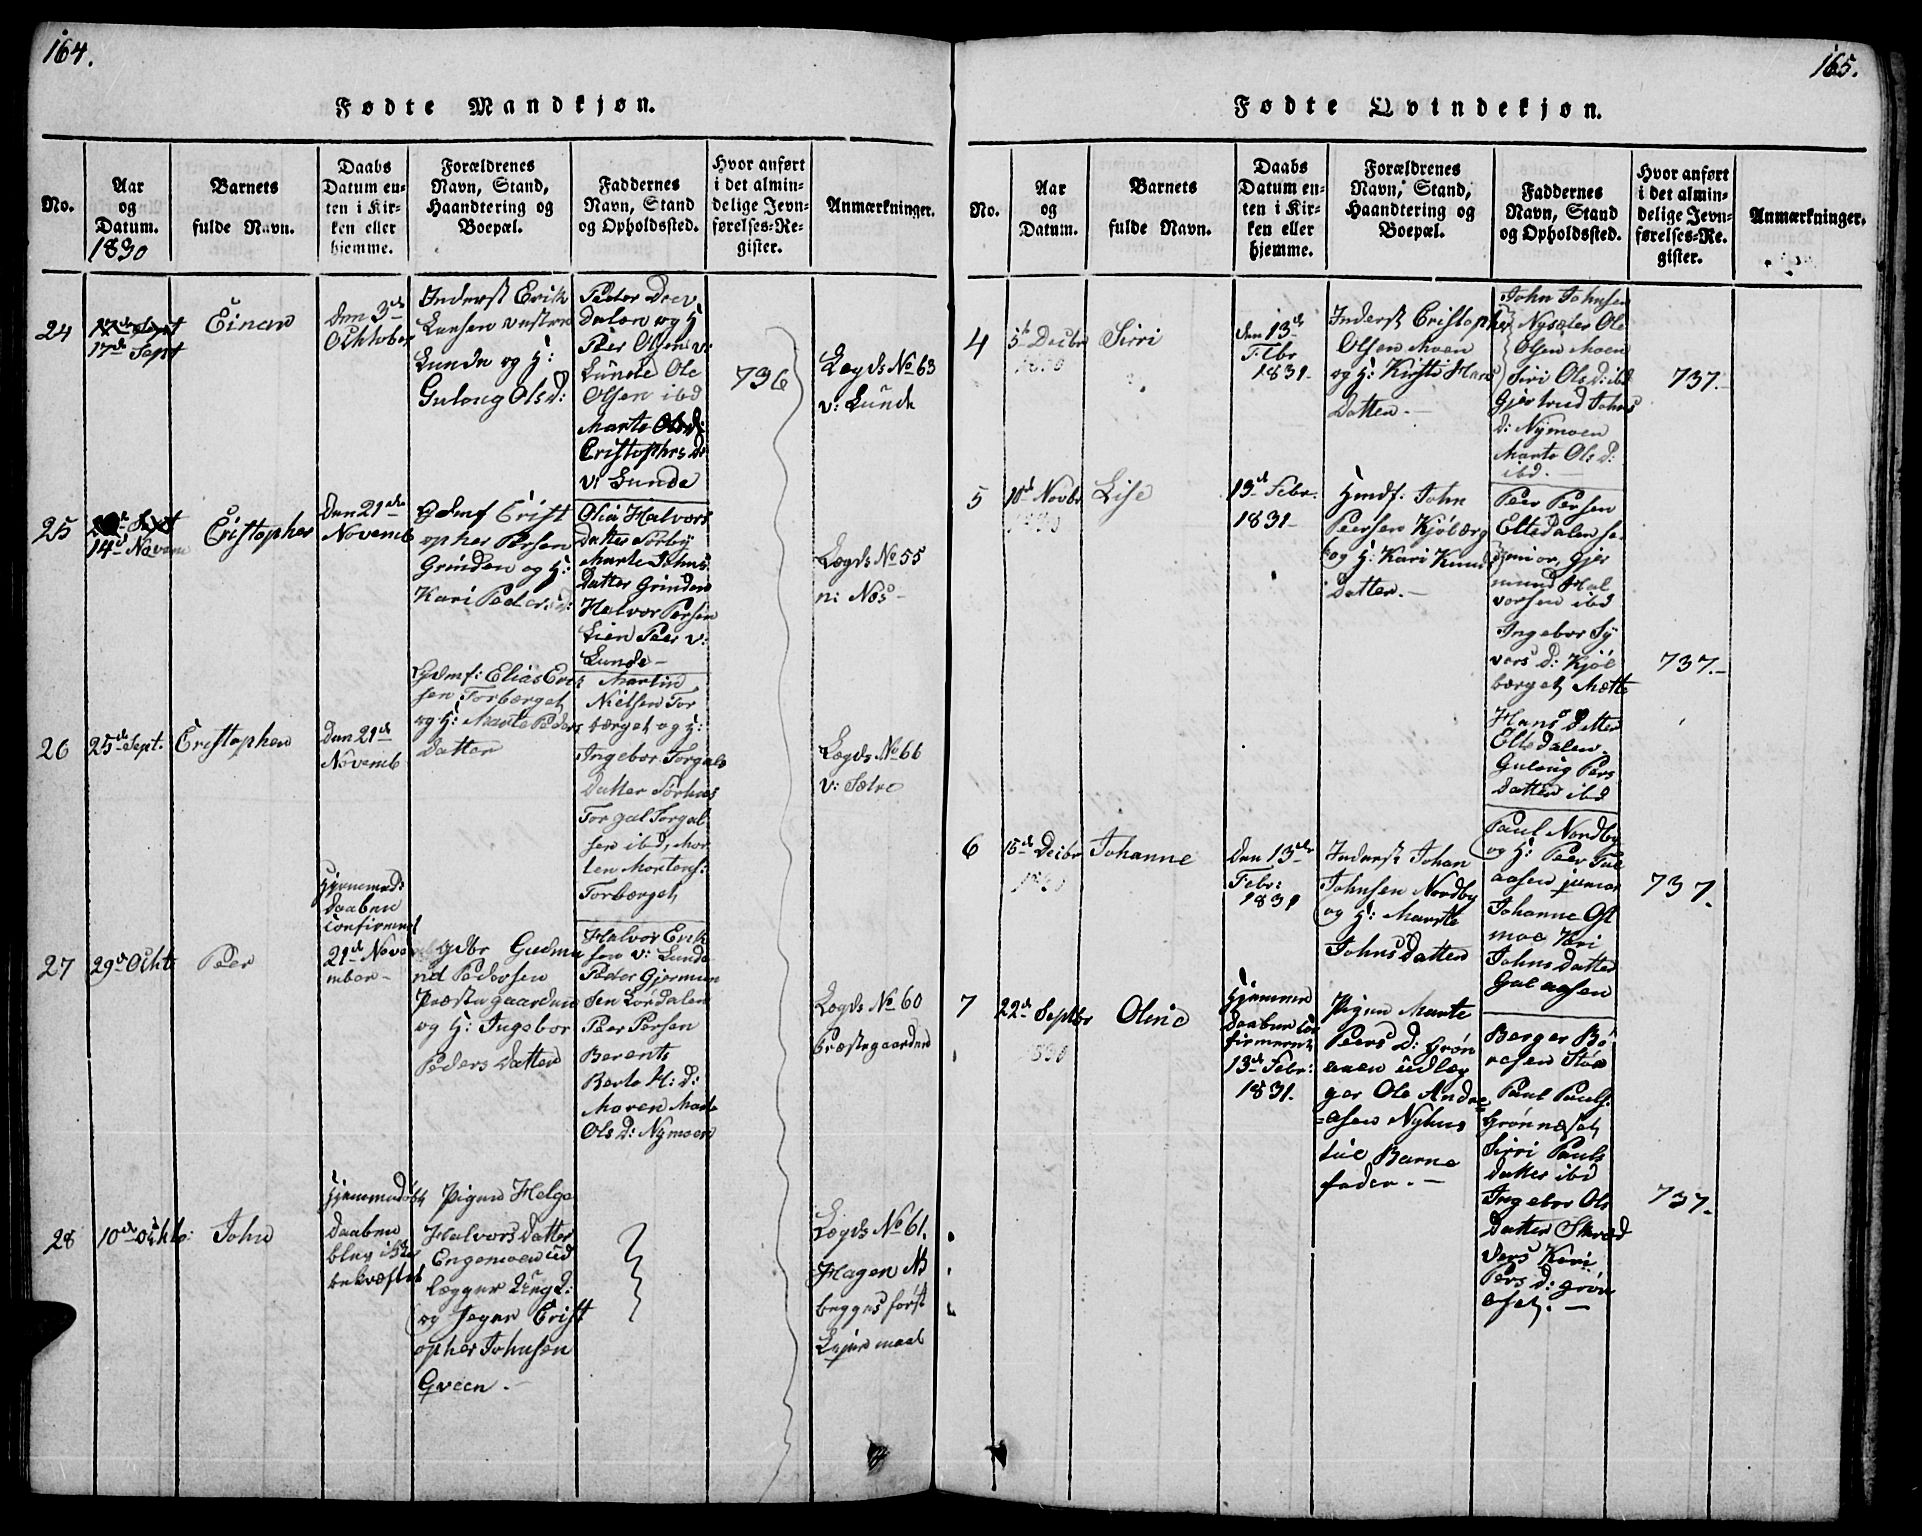 164.
Fødte Mandkjøn.
No.
Aar
og
Datum.
1830
Barnets
fulde Navn.
Daabs
Datum en-
ten i Kir-
ken eller
hjemme.
Forældrenes
Navn, Stand,
Haandtering og
Boepæl.
Faddernes
Navn, Stand
og Opholdssted.
Hvor anført
i det almin-
delige Jevn-
førelses-Re-
gister.
Anmærkninger.
24
17de Sept
Einar
Den 3de
Ochtober
Inderst Erik
Larsen
Lunde og H:
Gulong Ols D:
Peder Drev
dalen og H
Peer Olsen v:
Lunde Ole
Olsen ibd
Marte Olsd:
Cristophers D:
v: Lunde
736
Lægds No 63
v: Lunde
25
14de Novem
Cristopher
Den 21de
Novemb
Gdmf Crist
opher Persen
Grinden og H:
Kari Peders D:
Olia Halvors
Datter Sørby
Marte Johns
Datter Grinden
Halvor Persen
Lien Peer v:
Lunde-
Lægds No 55
n: Næs-
26
25de Sept.
Cristopher
Den 21de
Novemb
Gdmf: Elias Erik
sen Torberget
og H: Marte Peders
Datter
Martin
Nielsen Tor
berget og H:
Ingebor Torgals
Datter Sørhus
Torgal Torgal
sen ibd, Mor
ten Mortens:
Torberget
Lægds No 66
v: Sætre
27
29de Ochto
Peer
Hjemmed:
daaben
Confirmeret
21de Nove
mber-
Gdbr Gudmu
nd Pedersen
Præstegaarden
og H: Ingebor
Peders Datter
Halvor Erik
sen v: Lunde
Peder Gjermun
sen Lørdalen
Peer Persen
Berents
Berte H: D:
Maren Marte
Ols D: Nymoen
Lægds No 60
Præstegaarden
28
10de Ochto:
John
Hjemmedøbt
daaben
blev i Kir
bekræftet
Pigen Helge
Halvors Datter
Engemoen ud
lægger Ung D:
og Peger Crist
opher Johnsen
Qveen.-
Lægds No 61.
Hagen NB
begges først
Lejermaal
165.
Fødte Qvindekjøn.
No.
Aar
og
Datum.
Barnets
fulde Navn.
Daabs
Datum en-
ten i Kir-
ken eller
hjemme.
Forældrenes
Navn, Stand,
Haandtering og
Boepæl.
Faddernes
Navn, Stand
og Opholdssted.
Hvor anført
i det almin-
delige Jevn-
førelses-Re-
gister.
Anmærkninger.
4
5te Decbr
1830
Sirri
den 13de
Febr
1831-
Inderst Cristopher
Olsen Moen
og H: Kirsti Hans
Datter.-
John Johnsen
Nysæter Ole
Olsen Moen
Siri Ols D: ibd
Gjertrud Johns
D: Nymoen
Marte Ols D:
ibd.-
737.-
5
10de Novbr
1830
Lise
13de Febr.
1831-
Huusf: John
Peersen Kjøberg
og H: Kari Knuds
Datter.-
Peer Persen
Eltedalen se-
nior, Gjer
mund Hal
vorsen ibd
Ingebor Sy
vers D: Kjøl
berget Mette
Hans Datter
Eltedalen.
Gulaug Pers
Datter ibd
737.-
6
15de Decbr
1830
Johanne
den 13de
Febr:
1831
Inderst Johan
Johnsen Nordby
og H: Marte
Johns Datter
Paul Nordby
og H: Peer Gal
aasen junior
Johanne Ost
moe Kari
Johns datter
Galaasen
737.
7
22de Septbr
1830
Oline
Hjemmed
daaben con
firmeret
13de Febr:
1831.
Pigen Marte
Peers D: Grøn
æsen udlæg
ger Ole Andre
=asen Nyhus
til Barne
fader.-
Berger Bo
resen Støa
Paul Pauls:
Grønnæset
Sirri Pauls
datter ibd
Ingebor Ols
Datter Skræd
ders Kari
Pers D: Grøn
æset.-
737.